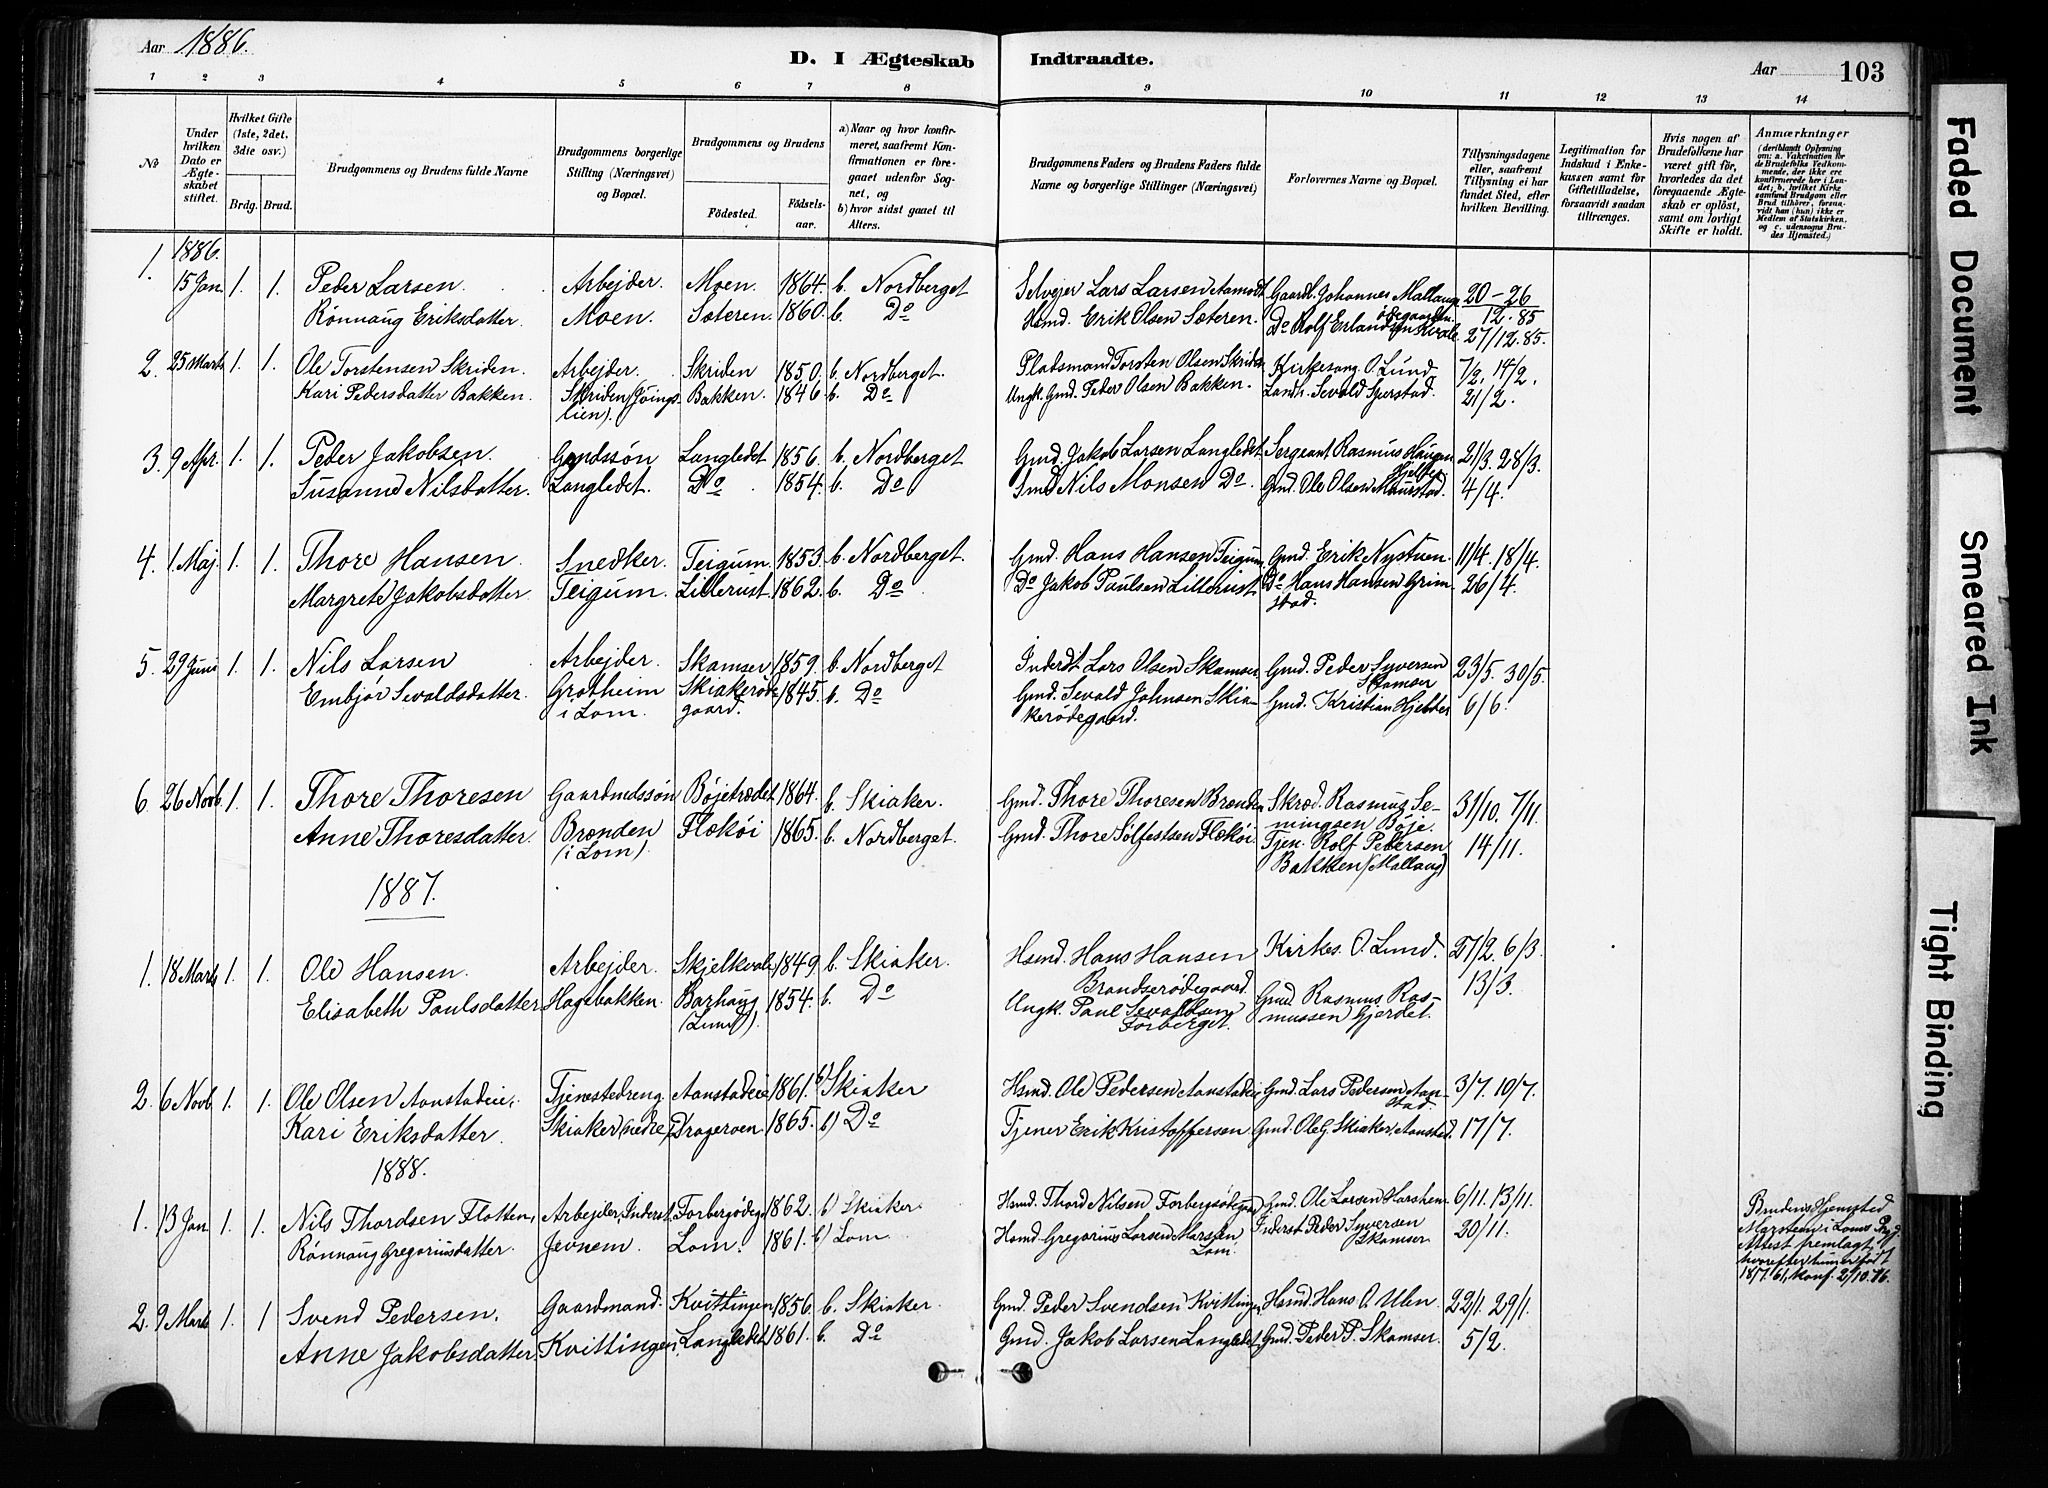 Aar 1886.
D. I Ægteskab Indtraadte.
Aar 103
1 2 3 4 5 6 7 8 9 10 11 12 13 14
No
Under hvilken Dato er Ægteskabet stiftet.
Hvilket Gifte (1ste, 2det, 3die osv.)
Brdg. Brud.
Brudgommens og Brudens fulde Navne
Brudgommens borgerlige Stilling (Næringsvei) og Bopæl.
Brudgommens og Brudens
Födested.
Födselsaar.
a) Naar og hvor konfirmeret, saafremt Konfirmationen er foregaaet udenfor Sognet, og
b) hvor sidst gaaet til Alters.
Brudgommens Faders og Brudens Faders fulde Navne og borgerlige Stillinger (Næringsvei)
Forlovernes Navne og Bopæl.
Tillysningsdagene eller, saafremt Tillysning ei har fundet Sted, efter hvilken Bevilling.
Legitimation for Indskud i Enkekassen samt for Giftetilladelse, forsaavidt saadan tiltrænges.
Hvis nogen af Brudefolkene har været gift för, hvorledes da det foregaaende Ægteskab er oplöst, samt om lovligt Skifte er holdt.
Anmærkninger (deriblandt Oplysning om: a. Vakcination for de Brudefolks Vedkommende, der ikke ere konfirmerede her i Landet; b. hvilket Kirkesamfund Brudgom eller Brud tilhörer, forsaavidt han (hun) ikke er Medlem af Statskirken, og c. udensogns Brudes Hjemsted.)
1886.
1. 15 Jan. 1. 1. Peder Larsen. Arbejder. Moen. 1864. b. Nordberget Selvejer Lars Larsen Aamodt Gaardb. Johannes Mallaug 20-26
Rønnaug Eriksdatter. Moen. Sæteren. 1860. b. Do Hsmd. Erik Olsen Sæteren. ødegaarden. 12.85
Do Rolf Erlandsen Kvale. 27/12.85.
2. 25 Marts 1. 1. Ole Torstensen Skriden. Arbejder. Skriden 1850. b. Nordberget. Pladsmand Torsten Olsen Skriden Kirkesang. O. Lund 7/2. 14/2.
Kari Pedersdatter Bakken. Skriden Bakken. 1846 b. Do Ungk. Gmd. Peder Olsen Bakken. Landh. Sevald Sperstad. 21/2.
lien).
3. 9 Apr. 1. 1. Peder Jakobsen. Gmdssön Langledet 1856. b. Nordberget Gmd. Jakob Larsen Langledet Sergeant Rasmus Haugen 21/3. 28/3.
Hjelter
Susanne Nilsdatter. Langledet. Do 1854. b. Do Smd Nils Monsen Do. Gmd. Ole Olsen Maurstad. 4/4.
4. 1 Maj 1. 1. Thore Hansen. Snedker. Teigum. 1853. b. Nordberget. Gmd. Hans Hansen Teigum Gmd. Erik Nystuen. 11/4. 18/4.
Margrete Jakobsdatter. Teigum. Lillerust. 1862. b. Do Do Jakob Paulsen Lillerust Do Hans Hansen Grim- 26/4.
stad.
5. 29 Juni 1. 1. Nils Larsen Arbejder. Skamser 1859. b. Nordberget Inderst. Lars Olsen Skamser Gmd. Peder Syversen 23/5. 30/5.
Skamser
Embjør Sevaldsdatter. Grotheim Skiakeröde- 1845. b. Do Gmd. Sevald Johnsen Skia- Gmd. Kristian Hjelter 6/6.
i Lom. gaard. kerödegaard.
6. 26 Novb. 1. 1. Thore Thoresen Gaardmdssön Böjetrædet 1864. b. Skiaker. Gmd. Thore Thoresen Brenden Skræd. Rasmus Se- 31/10. 7/11.
mingsen Böje.
Anne Thoresdatter. Brenden Flekøi 1865. b. Nordberget. Gmd. Thore Sølfestsen Flekøi. Tjen. Rolf Pedersen 14/11.
(i Lom). Bakken (Mallaug)
1887.
1. 18 Marts 1. 1. Ole Hansen. Arbejder. Skjelkvale 1849. b. Skiaker. Hsmd. Hans Hansen Kirkes. O. Lund. 27/2. 6/3.
Brandserödegaard.
Elisabeth Paulsdatter Hagebakken. Barhaug 1854. b. Do Ungk. Paul Sevaldsen Gmd Rasmus Ras- 13/3.
(Lund). Forberget. mussen Gjerdet.
2. 6 Novb. 1. 1. Ole Olsen Aanstadeie. Tjenestedreng Aanstadeie 1861. b) Skiaker Hsmd. Ole Pedersen Aanstadeie Gmd. Lars Pedersen Aan- 3/7. 10/7.
stad.
Kari Eriksdatter. Skiaker nedre Drageroen. 1865. b) Do Tjener Erik Kristoffersen Gmd. Ole G. Skiaker, Aanstad. 17/7.
1888.
1. 13 Jan. 1. 1. Nils Thordsen Flotten, Arbejder, Inderst Forbergödeg. 1862. b) Skiaker. Hsmd. Thord Nilsen Forbergsödegaard Gmd. Ole Larsen Harsheim 6/11. 13/11.
Rönnaug Gregoriusdatter. Jevnem. Lom. 1861. b) Lom Hsmd. Gregorius Larsen Marsten Inderst Peder Syversen 20/11.
Lom. Skamser
Brudens Hjemsted
Marsteen i Loms Prgj.
Attest fremlagt,
hvorefter hun er födt
18/7.61, konf. 2/10.76.
2. 9 Marts 1. 1 Svend Pedersen. Gaardmand. Kvittingen 1856. b. Skiaker. Gmd. Peder Svendsen Kvittingen Hsmd. Hans O. Ulen. 22/1. 29/1.
Anne Jakobsdatter. Kvittingen. Langledet 1861. b. Do Gmd. Jakob Larsen Langledet Gmd. Peder P. Skamser. 5/2.
Faded Document
Smeared Ink
Tight Binding